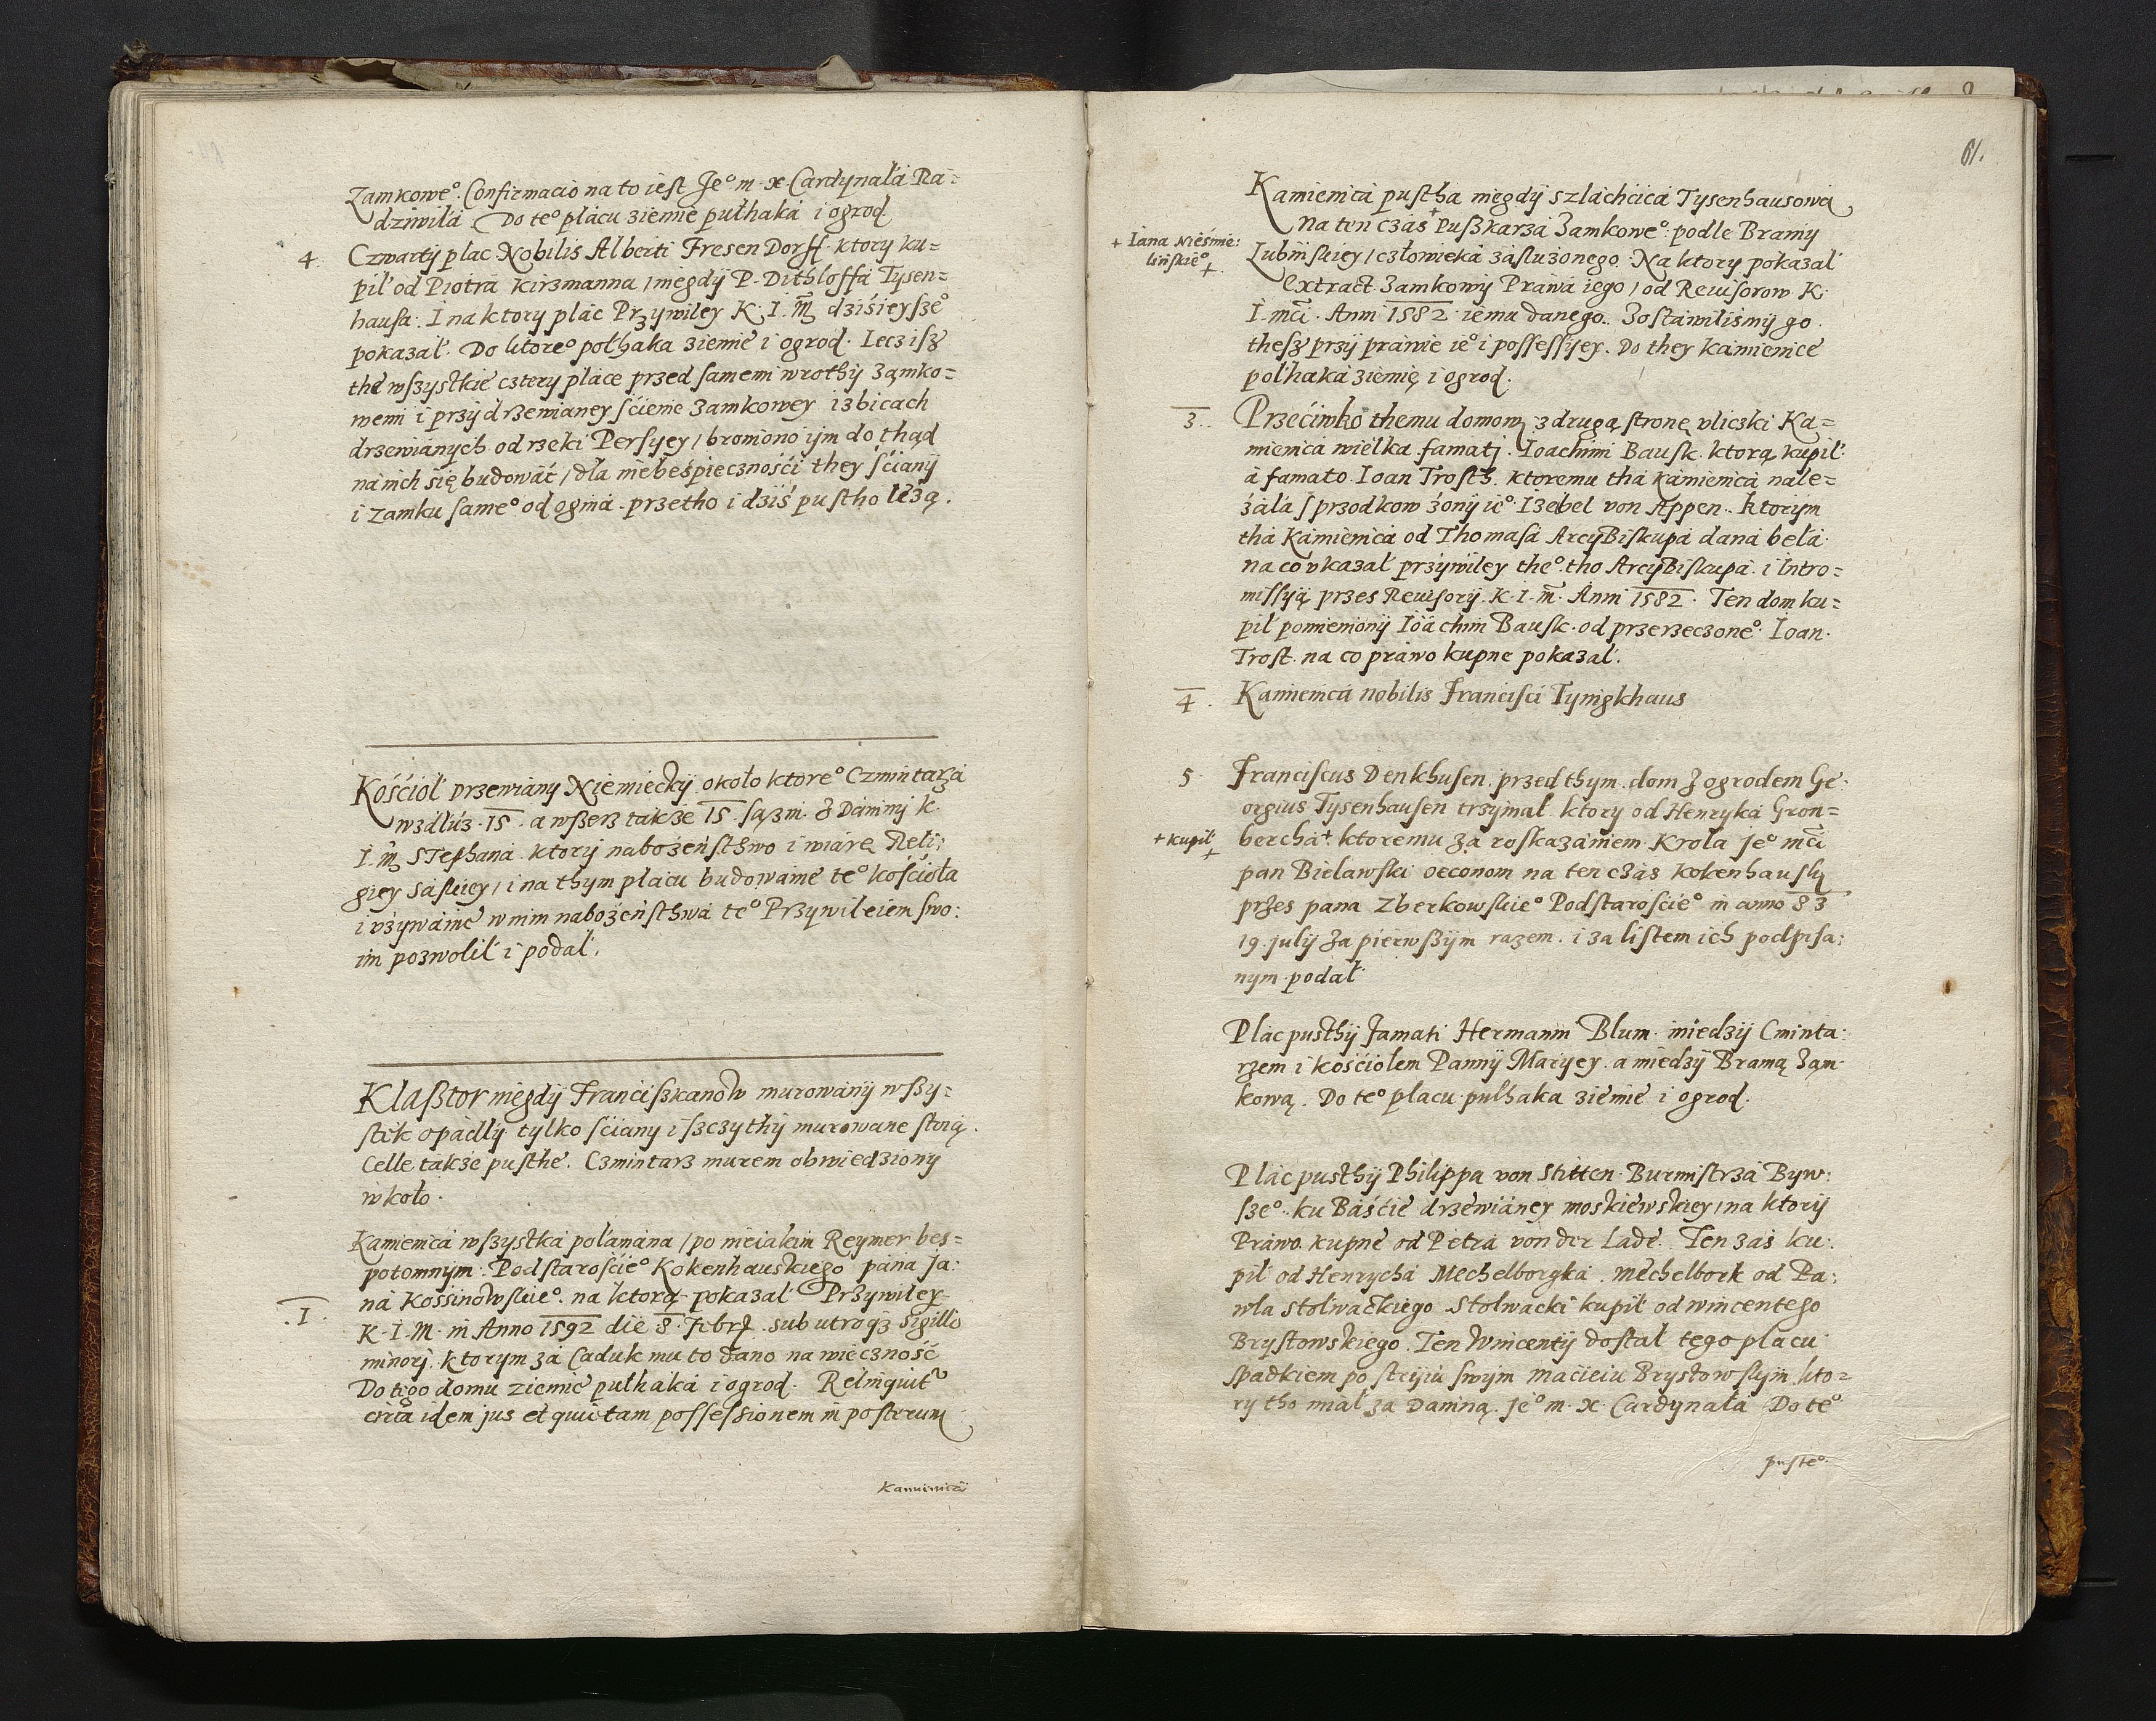 Zamkowe°. Confirmacio na to iest Je° m. x. Cardynałá Ra=
dziwiłá. Do te° plácu ziemie pułhaká i ogrod.
4. Czwarty plac Nobilis Alberti Fresen Dorff. ktory ku=
pił od Piotrá Kirzmanna / niegdÿ P. Dithloffá Tysen=
hausa. I na ktory plác Przywiley K. I. M. dzisieÿsze°
pokazał. Do ktore° połhaka ziemie i ogrod. Lecz isz
the wszystkie cztery place przed samemi wrothÿ zamko=
wemi i przÿ drzewianey scienie zamkowey izbicach
drzewiánych od rzeki Persÿeÿ / broniono ÿm do thąd
ná nich się budowáć / dla niebespieczności they ściany
i zamku same° od ognia. przetho i dziś pustho leżą.
Kośćioł Drzewiany Niemieckÿ około ktore° Czmintarzá
wzdłuż. 15. a wszerz także 15. sążni. z Daniny K.
I. M. STephaná. ktory nabożeństhwo i wiárę Reli:
gieÿ Saskieÿ / i na thym plácu budowánie te° kośćioła
i vżywánie w nim nabożeństhwá te° Przywileiem swo:
im pozwolił i podał.
Klasztor niegdÿ Franciszkanow murowánÿ wszy=
stek opadłÿ tylko ściany i szczythÿ murowane stoią.
Celle także pusthe. Czmintarz murem obwiedziony
w koło.
Kamienica wszystká połamána / po nieiakim Reymer bes=
potomnym. Podstarośćie° Kokenhauskiego pána Ja:
ná Kossinowskie°. na ktorą pokazał Przywiley
.I. K. I. M. in Anno 1592 die 8. Febrz. sub utroqz sigillo
minorj. ktorym zá Caduk mu to dáno na wieczność
Do tego domu ziemie pułhaká i ogrod. Relinquit
circa idem jus et quietam possessionem in posterum
Kamienicá
61.
Kamienicá pustha niegdÿ szláchćicá Tysenhausowá
Na ten czás + Puszkarzá Zamkowe°. podle Bramÿ
+ Iana Nieśmie:
lińskie° +
Lubińskiey / człowieká zásłużonego. Na ktory pokazał
extract Zamkowÿ Prawá iego / od Rewisorow K.
I. mći. Anni 1582 iemu danego. Zostáwiliśmÿ go
thesz przÿ práwie ie° i possessÿeÿ. Do theÿ kámienice
połhaká ziemię i ogrod.
3. Przećiwko themu domowi z drugą stronę vliczki Ka=
mienicá wielka famatj. Ioachimi Bausk. ktorą kupił
á famato Ioan Trosth. ktoremu thá kámienicá nále=
żáłá / przodkow żonÿ ie° Izebel von Appen. ktorÿm
thá Kámienicá od Thomasá ArcÿBiskupá daná belá.
na co vkazał przÿwiley the° tho ArcÿBiskupá. i Intro=
missÿą przes Rewisorÿ. K. I. M. Anni 1582. Ten dom ku=
pił pomienionÿ Ioáchim Bausk. od przerzeczone° Ioan.
Trost. na co práwo kupne pokazał.
4. Kamienicá nobilis Francisci Tymgkhaus
5. Franciscus Denkhusen. przed thym. dom z ogrodem Ge:
orgius Tysenhausen trzÿmał. ktory od Henryká Gron=
berchá + ktoremu zá roskazániem Krola Je° mći
+ kupił +
pan Bielawski oeconom na ten czás Kokenhauskÿ
przes pana Zberkowskie° Podstarośćie° in anno 83
19. julÿ za pierwszÿm razem. i za listem ich podpisa:
nym podał
Plác pusthÿ Famati Hermanni Blum. miedzÿ Cminta:
rzem i kośćiołem Pannÿ Marÿeÿ. a miedzÿ Bramą Zam
kową. Do te° placu pułhaka ziemie i ogrod.
Plác pusthÿ Philippa von Stitten Burmistrzá Byw:
sze°. ku Báśćie drzewiáney moskiewskiey / na ktorÿ
Práwo kupne od Petrá von der Lade. Ten zas ku:
pił od Henrychá Mechelborgká. Mechelbork od Pa:
wła Stolwáckiego. Stolwacki kupił od Wincentego
Brystowskiego. Ten Wincentÿ dostał tego placu
spadkiem po strÿiu swym Maćieiu Brystowskÿm. kto=
rÿ tho miał za Daniną. Je° m. x. Cardynała. Do te°
puste°.